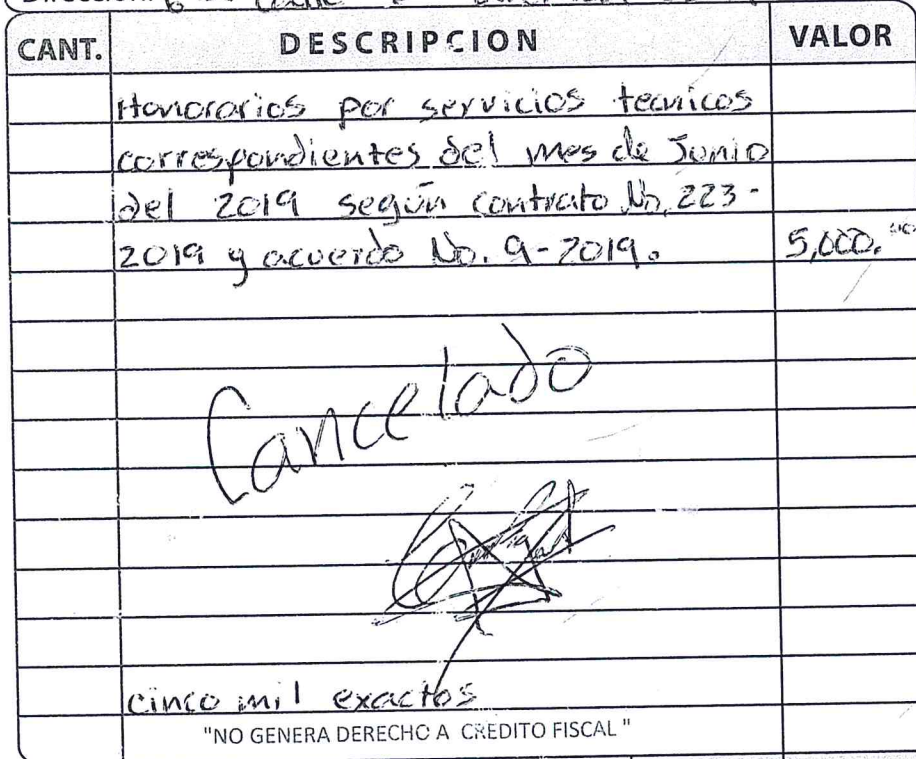 CANT. DESCRIPCION VALOR
Honorarios por servicios tecnicos
correspondientes del mes de Junio
del 2019 según contrato No. 223-
2019 y acuerdo No. 9-2019. 5,000.
Cancelado
cinco mil exactos
"NO GENERA DERECHO A CREDITO FISCAL"